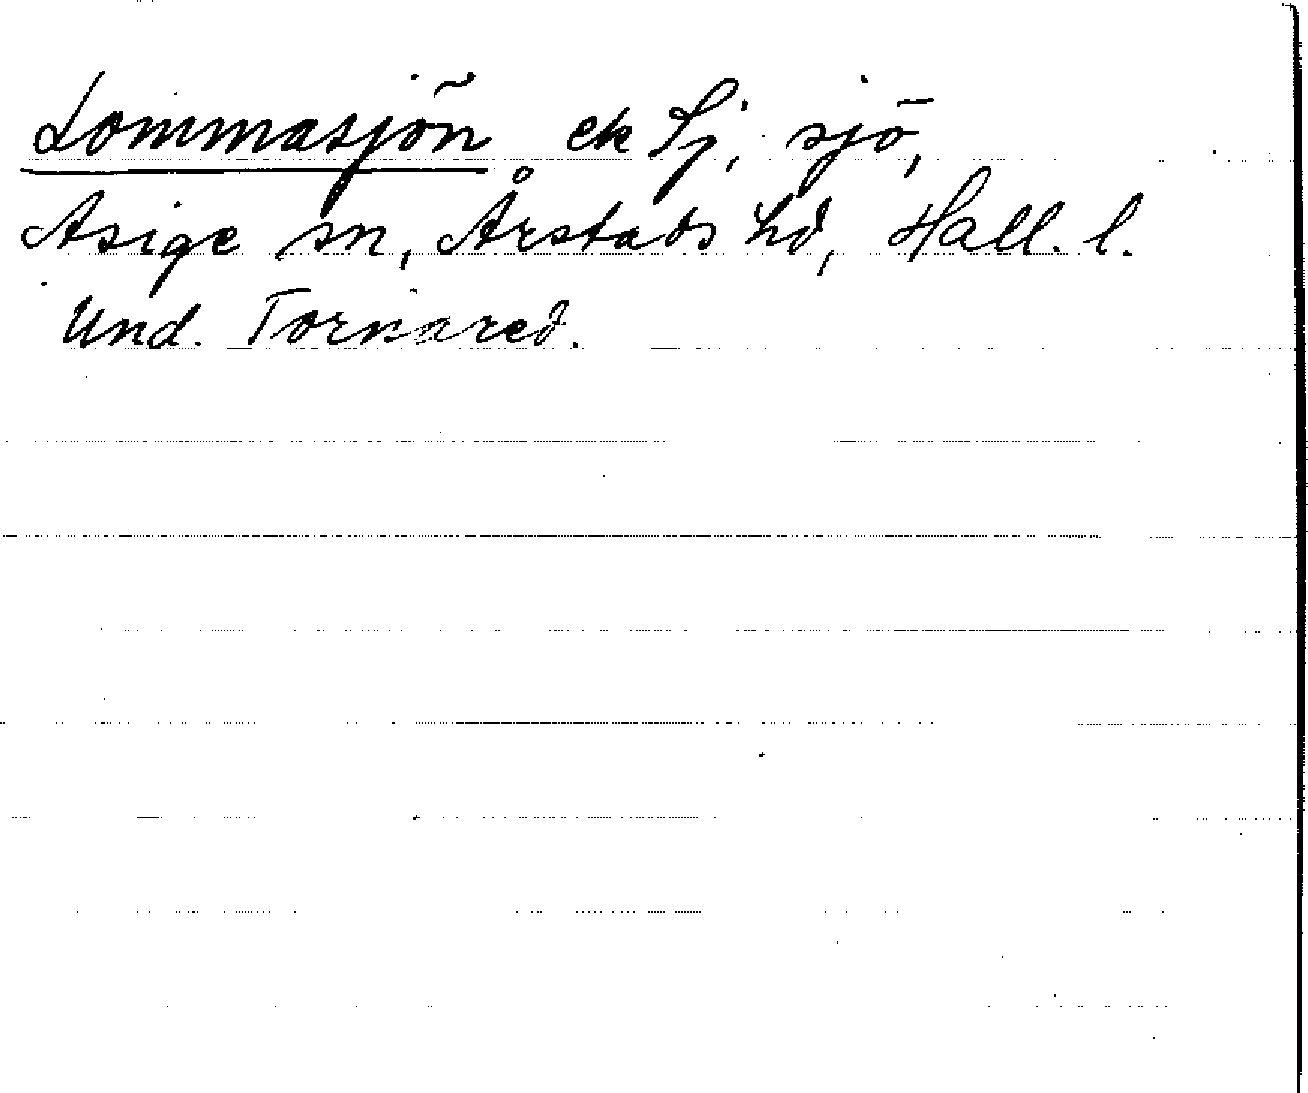 Lommasjön ek Sj, sjö,
Asige sn, Årstads hd, Hall. l.
Und. Tornared.